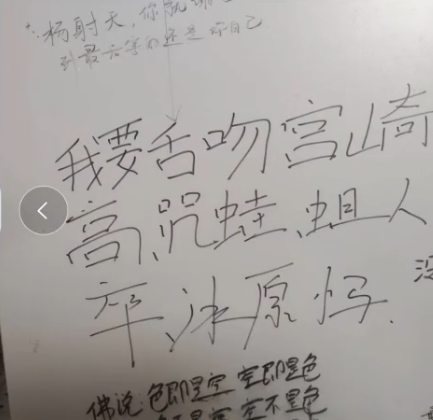 ∵杨射天,你就
到最后等的还是你自己
我要舌吻宫崎
高,咒蛙,蛆人
卒,冰原妈.
没
佛说:色即是空 空即是色
空不是色